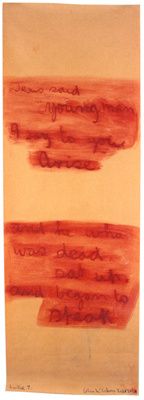 Jesus said
young man
I say to you
Arise
and he who
was dead
sat up
and began to
speak
Luke 7.